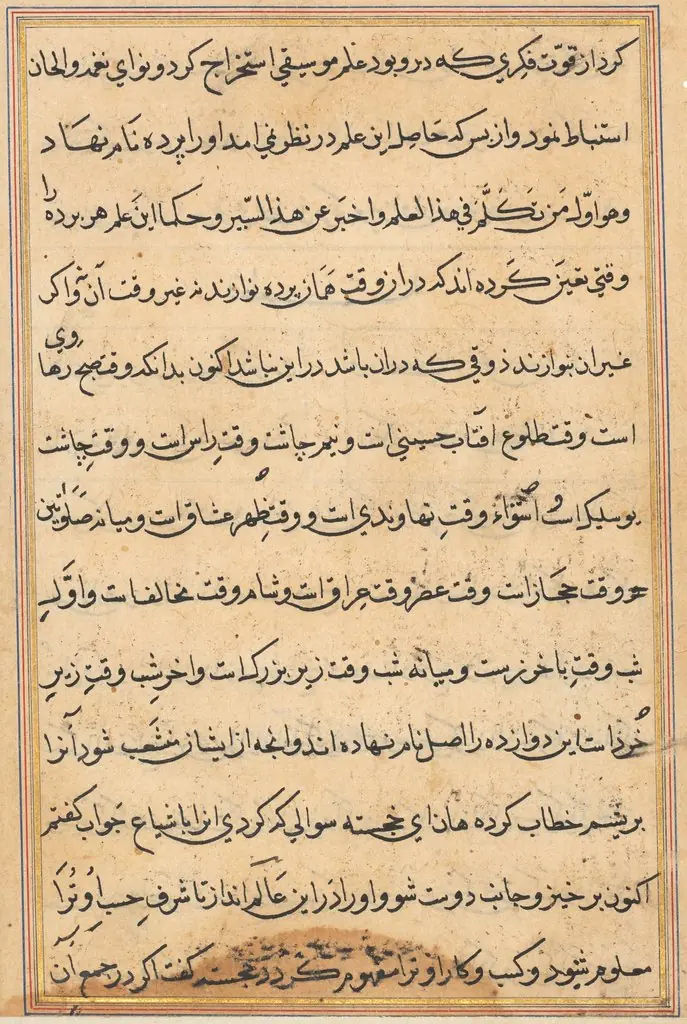 کرد از قوّت فکری که درو بود علم موسیقی استخراج کرد و نوای نغمه والحان
استنباط نمود واز بس که حاصل این علم در نظر نمی امد اورا پرده نام نهاد
وهو اوّل من تکلّم فی هذا لعلم واخبر عن هذا السّیر و حکما این علم هر پرده را
وقتی تعین کرده اند که دران وقت همان پرده نوازند نه غیر وقت آن و اگر
غیر ان بنوازند ذوقی که دران باشد در این نباشد اکنون بدانکه وقت صبح رهاوی
است وقت طلوع افتاب حسینی است و نیم چاشت وقت راس است و وقت چاشت
بوسلیک است استواء وقت نهاوندی است و وقت ظهر عشاق است و میانه صلوتین
وقت حجاز است وقت عصر وقت عراق است و شام وقت مخالف است و اوّل
شب وقت باخرزست و میانه شب وقت زیر بزرک است و اخر شب وقت زیر
خُرد است این دوازده را اصل نام نهاده اند وانجه از ایشان منشعب شود آنرا
بریشم خطاب کرده هان ای خجسته سوالی که کردی انرا باشباع جواب کفتم
اکنون بر خیز و جانب دوست شو و اورا در این عالم انداز تا شرف حسب او ترا
معلوم شود و کسب و کار او ترا مفهوم کردد خجسته کفت اکر در جمع آن